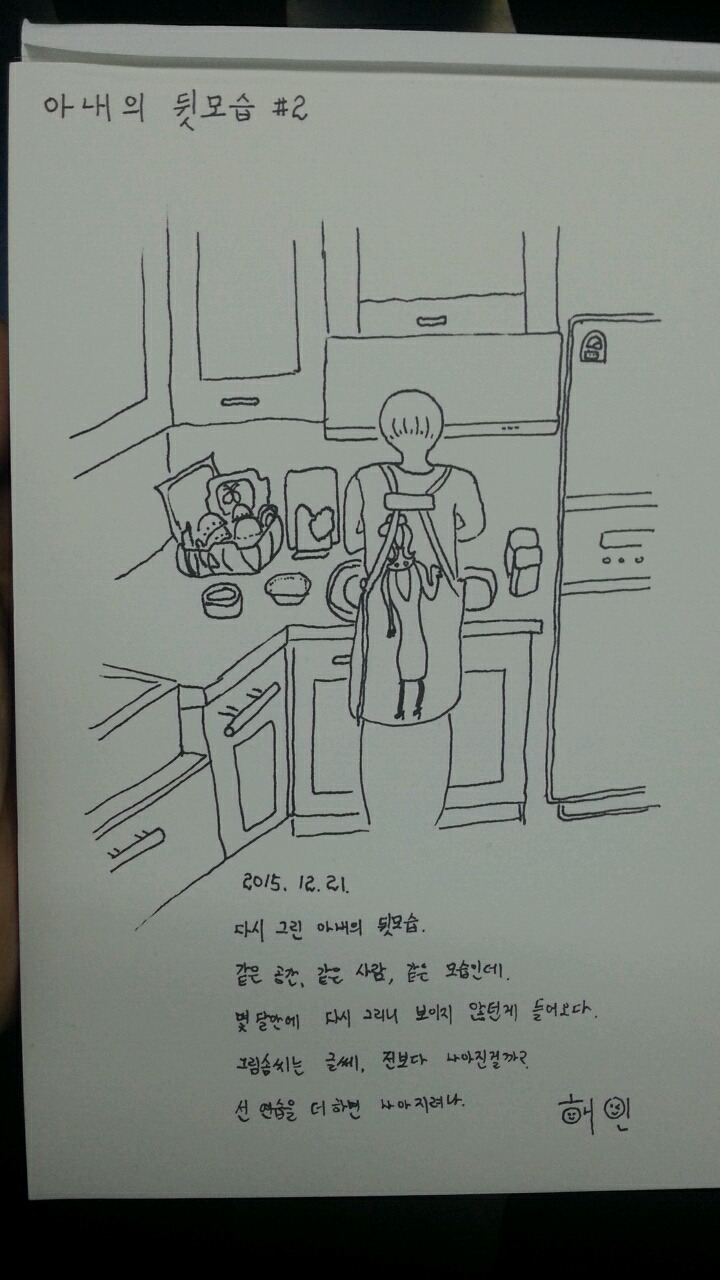 아내의 뒷모습 #2
2015. 12. 21.
다시 그린 아내의 뒷모습.
같은 공간, 같은 사람, 같은 모습인데.
몇 달만에 다시 그리니 보이지 않던게 들어오다.
그림솜씨는 글쎄, 전보다 나아진걸까?
선 연습을 더 하면 나아지려나.
해인